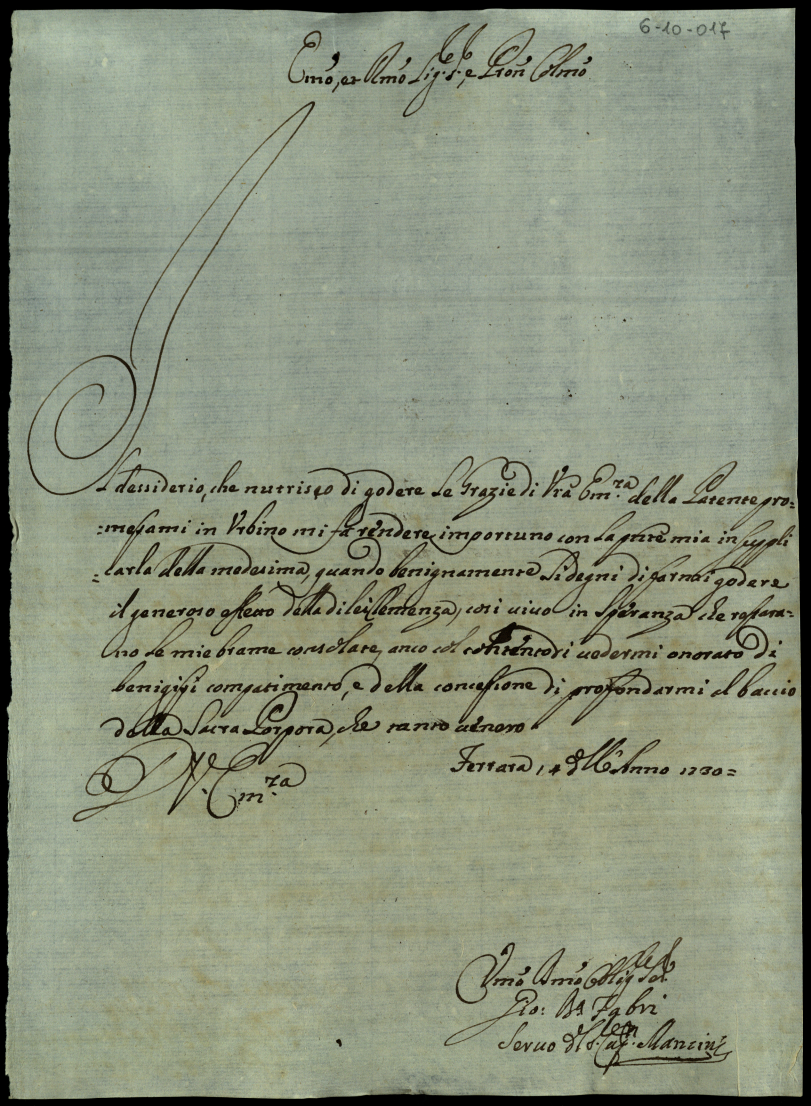 6-10-017
Emo, et Rmo Sig.r, e Pron Colmo
Il dessiderio, che nutrisco di godere le Grazie di Vra Em.za della Patente pro=
=messami in Urbino mi fa rendere importuno con la pnte mia in suppli
=carla della medesima, quando benignamente si degni di farmi godere
il generoso effetto della di lei Clemenza, così vivo in speranza che restara=
no le mie brame consolate, anco col contento di vedermi onorato di
benigissi compatimento, e della concessione di profondarmi al baccio
della Sacra Porpora, che tanto venero
D V. Em.za
Ferrara, 14 Anno 1730=
Umo Dmo Oblig Ser
Gio: Ba Fabri
Servo dl S. Mancini